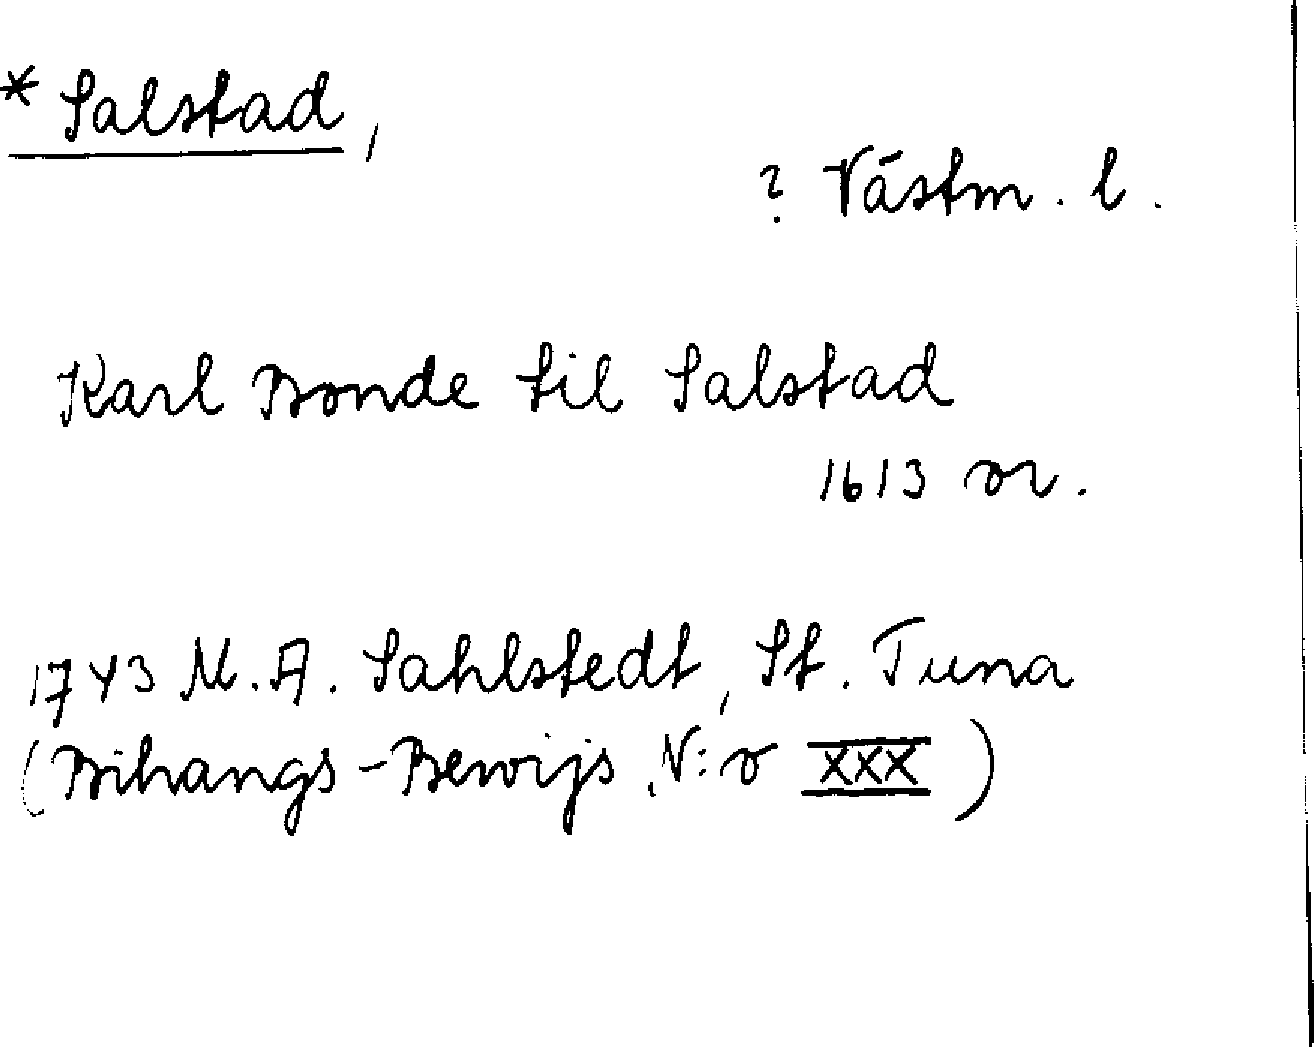 * Salstad,
? Västm. l.
Karl Bonde til Salstad
1613 or.
1743 M. A. Sahlstedt, St. Tuna
(Bihangs-Bewijs, N:o XXX)